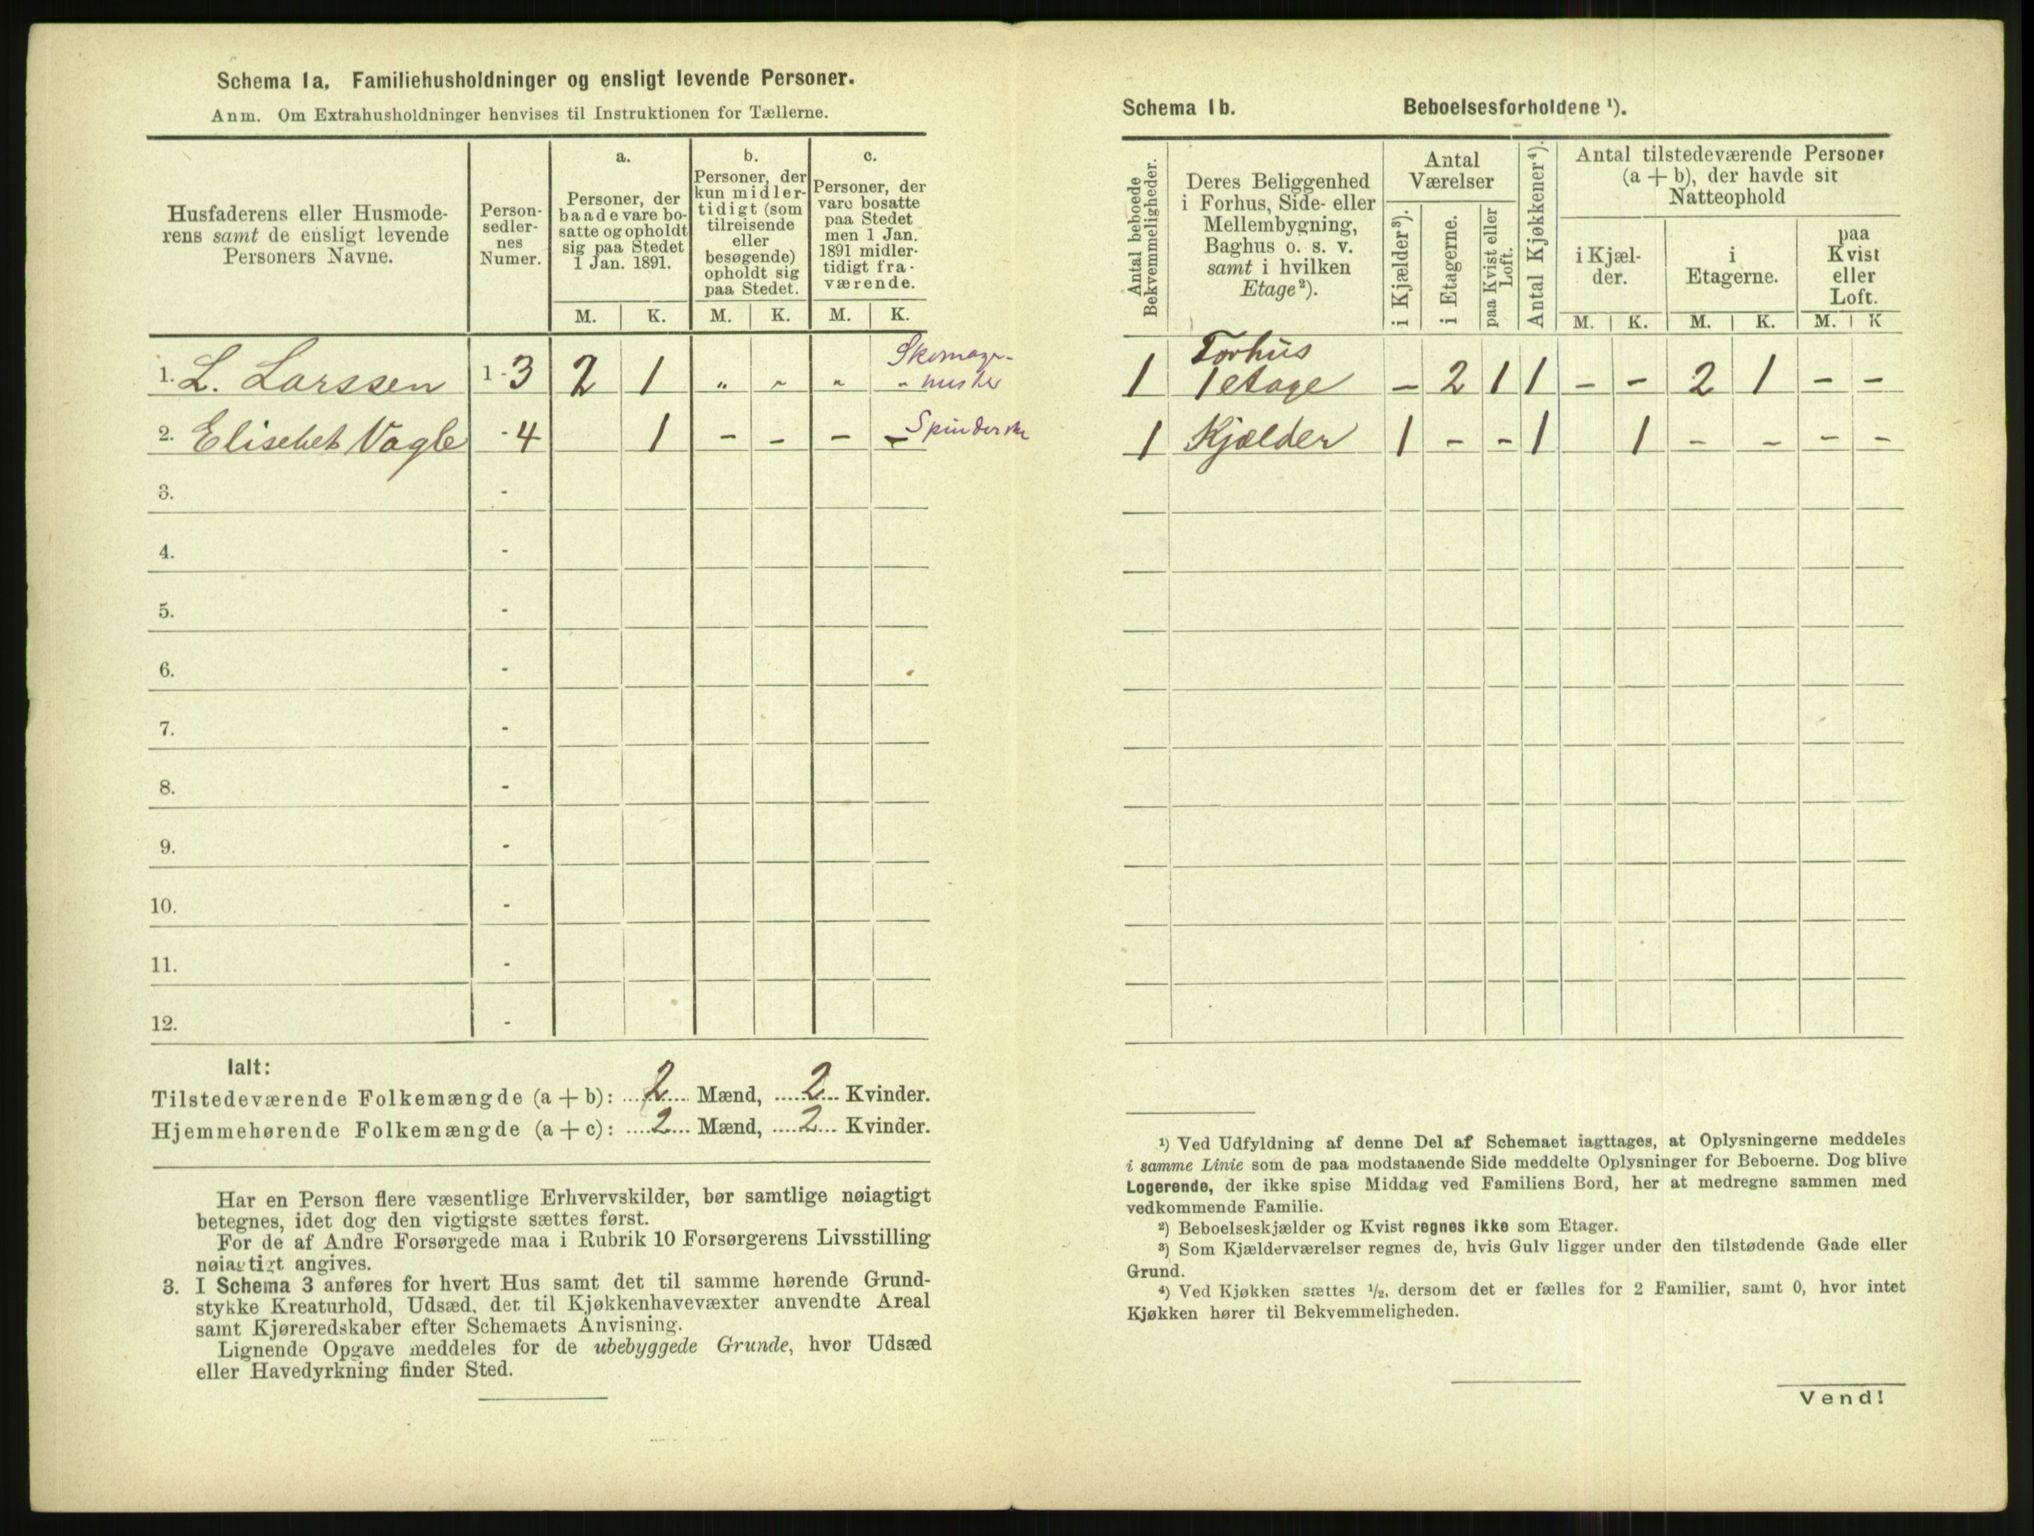 Schema 1a. Familiehusholdninger og ensligt levende Personer.
Anm. Om Extrahusholdninger henvises til Instruktionen for Tællerne.
Husfaderens eller Husmode-
rens samt de ensligt levende
Personers Navne.
Person-
sedler-
nes
Numer.
a.
Personer, der
baade vare bo-
satte og opholdt
sig paa Stedet
1 Jan. 1891.
b.
Personer, der
kun midler-
tidigt (som
tilreisende
eller
besøgende)
opholdt sig
paa Stedet.
c.
Personer, der
vare bosatte
paa Stedet
men 1 Jan.
1891 midler-
tidigt fra-
værende.
M. K. M. K. M. K.
1. L. Larssen 1-3 2 1 „ „ „ „
2. Elisebet Vagle -4 1 - - - - Spinderske
3. -
4. -
5. -
6. -
7. -
8. -
9. -
10. -
11. -
12. -
Ialt:
Tilstedeværende Folkemængde (a + b): 2 Mænd, 2 Kvinder.
Hjemmehørende Folkemængde (a + c): 2 Mænd, 2 Kvinder.
Har en Person flere væsentlige Erhvervskilder, bør samtlige nøiagtigt
betegnes, idet dog den vigtigste sættes først.
For de af Andre Forsørgede maa i Rubrik 10 Forsørgerens Livsstilling
nøiagtigt angives.
3. I Schema 3 anføres for hvert Hus samt det til samme hørende Grund-
stykke Kreaturhold, Udsæd, det til Kjøkkenhavevæxter anvendte Areal
samt Kjøreredskaber efter Schemaets Anvisning.
Lignende Opgave meddeles for de ubebyggede Grunde, hvor Udsæd
eller Havedyrkning finder Sted.
Schema 1b. Beboelsesforholdene ¹).
Antal beboede
Bekvemmeligheder.
Deres Beliggenhed
i Forhus, Side- eller
Mellembygning,
Baghus o. s. v.
samt i hvilken
Etage²).
Antal
Værelser
i Kjælder³).
i Etagerne.
paa Kvist eller
Loft.
Antal Kjøkkener⁴).
Antal tilstedeværende Personer
(a + b), der havde sit
Natteophold
i Kjæl-
der.
i
Etagerne.
paa
Kvist
eller
Loft.
M. K. M. K. M. K
Forhus
1 1 etage - 2 1 1 - - 2 1 - -
1 Kjælder 1 - - 1 1 - - - -
¹) Ved Udfyldning af denne Del af Schemaet iagttages, at Oplysningerne meddeles
i samme Linie som de paa modstaaende Side meddelte Oplysninger for Beboerne. Dog blive
Logerende, der ikke spise Middag ved Familiens Bord, her at medregne sammen med
vedkommende Familie.
²) Beboelseskjælder og Kvist regnes ikke som Etager.
³) Som Kjælderværelser regnes de, hvis Gulv ligger under den tilstødende Gade eller
Grund.
⁴) Ved Kjøkken sættes ½, dersom det er fælles for 2 Familier, samt 0, hvor intet
Kjøkken hører til Bekvemmeligheden.
Vend!